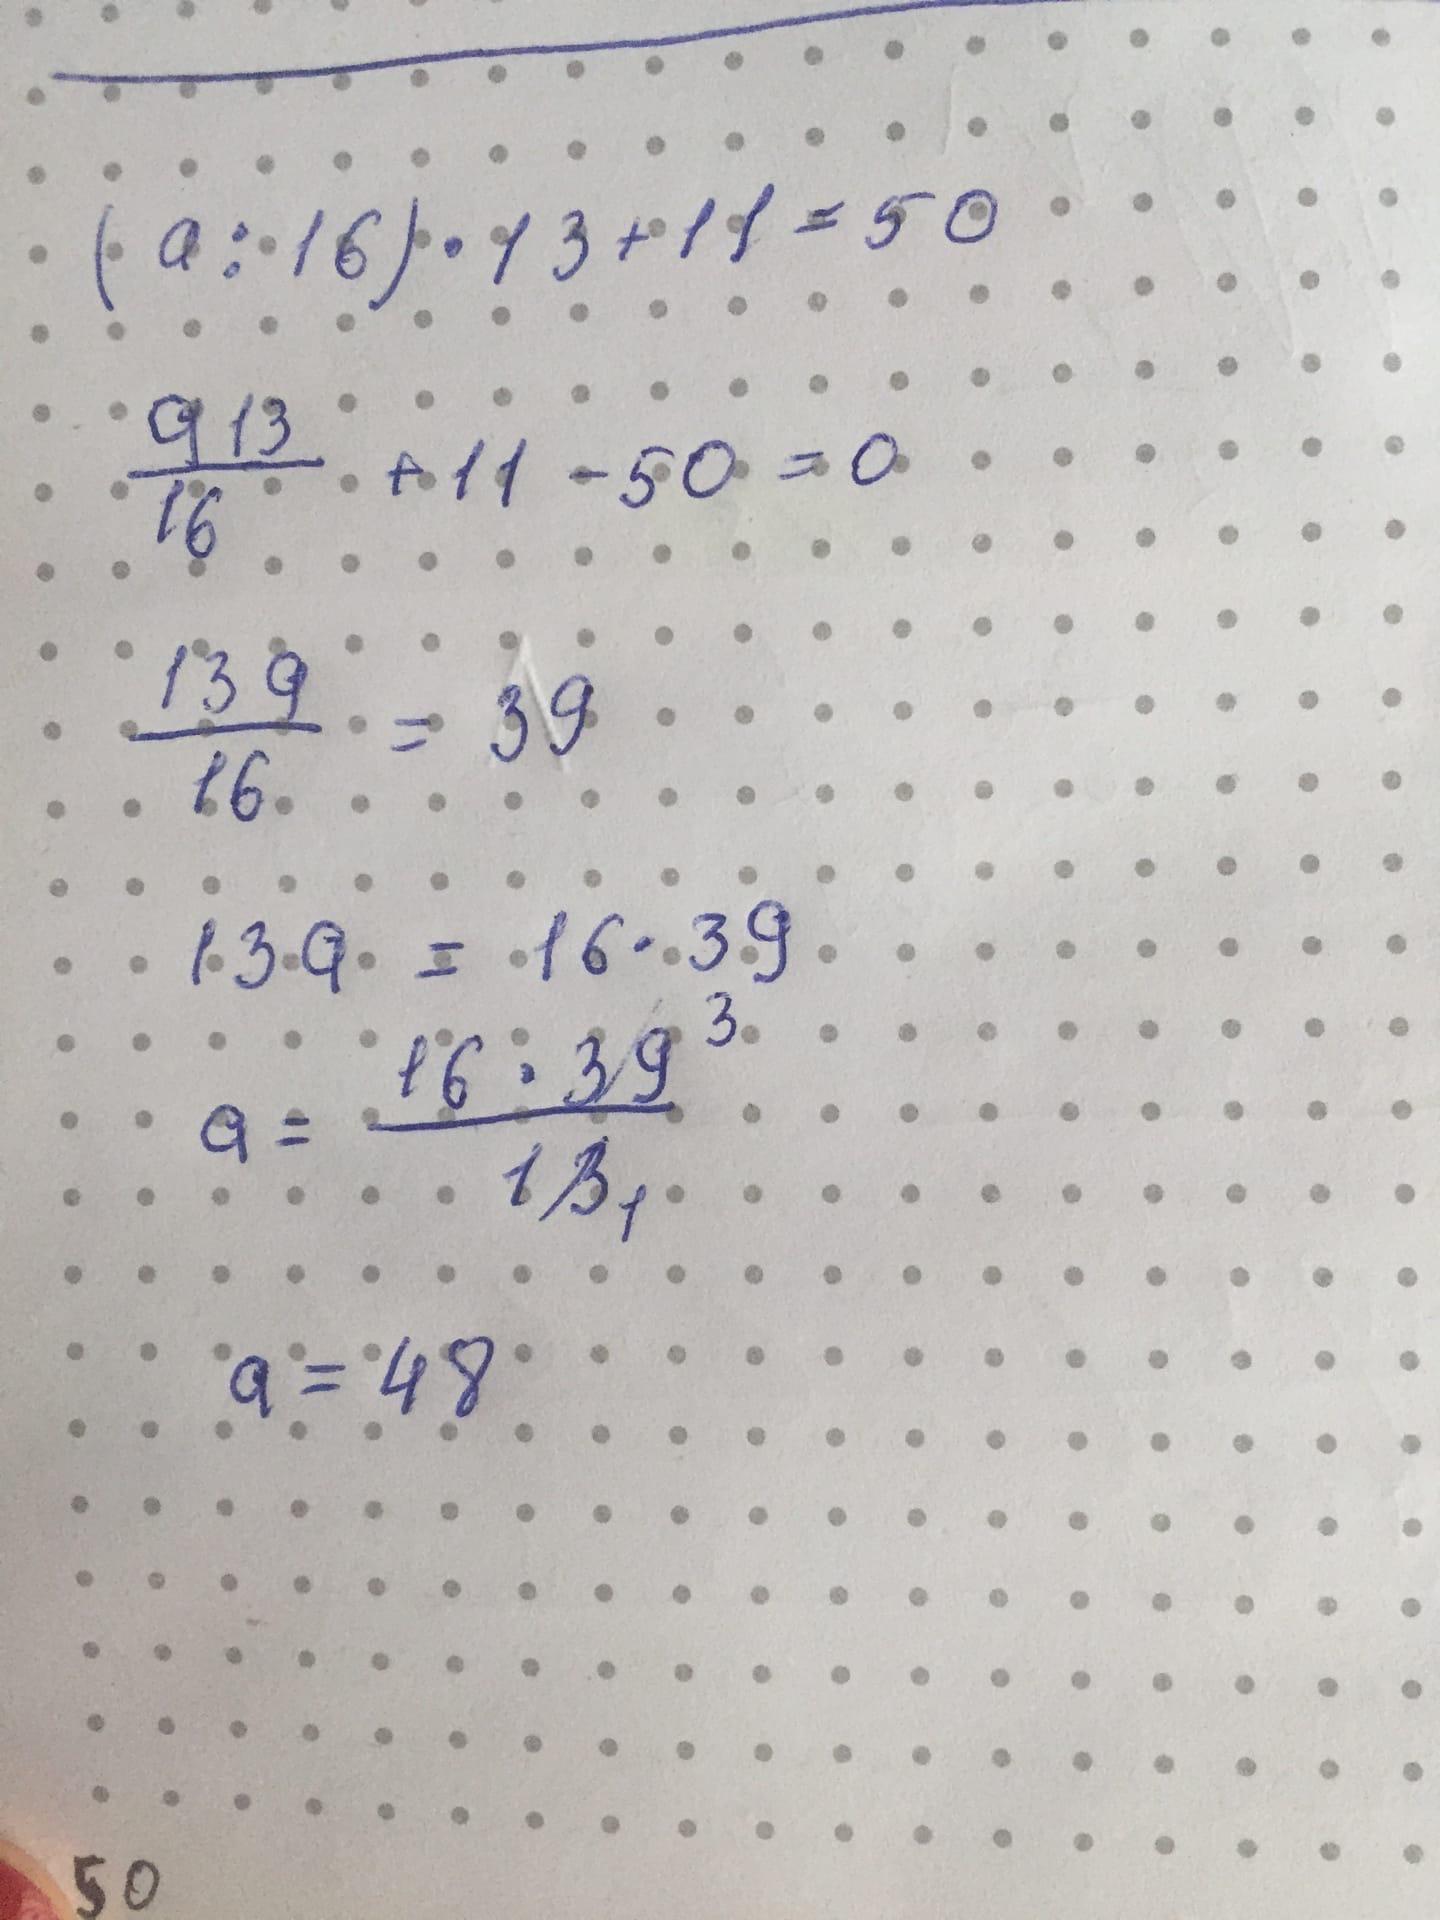 (a:16)·13+11=50
a13/16 +11-50=0
13a/16 = 39
13a = 16·39
a= 16·39 3/13 1
a=48
50